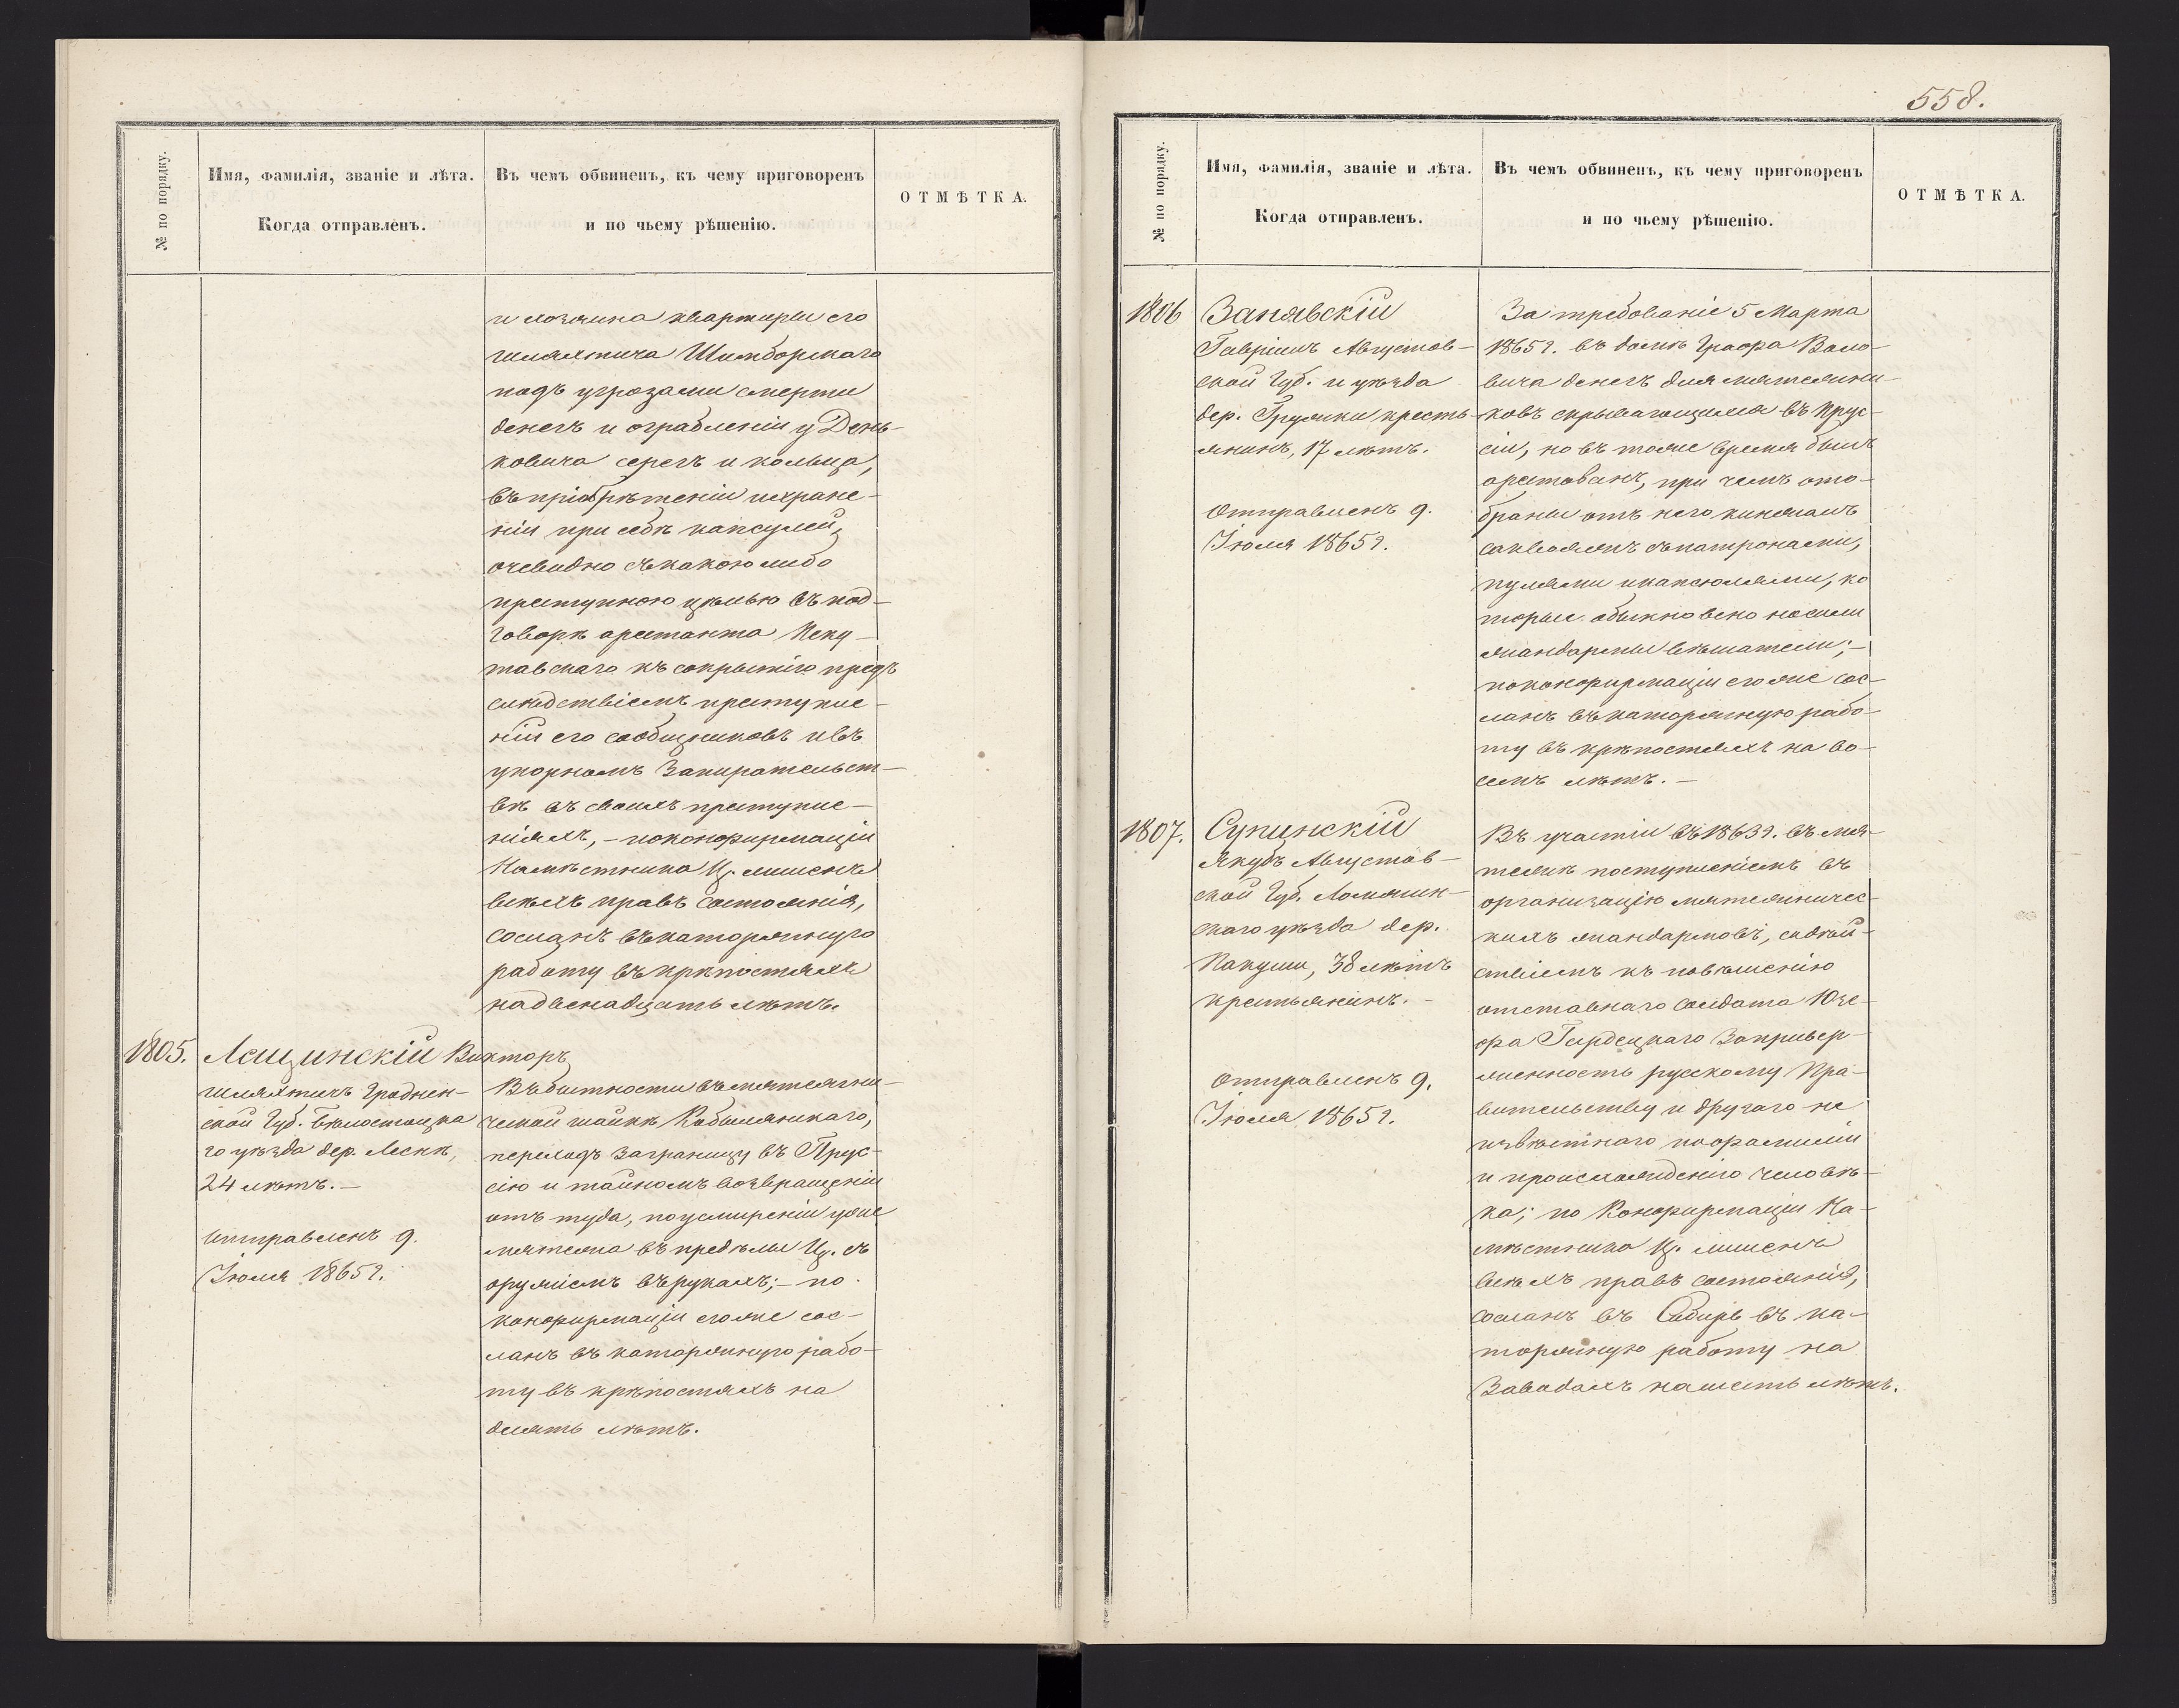 № по порядку.
Имя, фамилія, званіе и лѣта.
Когда отправленъ.
Въ чемъ обвиненъ, къ чему приговоренъ
и по чьему рѣшенію.
ОТМѢТКА.
и хозяина квартиры его
шляхтича Шимборскаго
подъ угрозами смерти
денегъ и ограбленіи у День-
ковича серегъ и кольца,
въ пріобрѣтеніи и хране-
ніи при себѣ капсулей,
очевидно съ какою либо
преступною цѣлью въ под-
говорѣ арестанта
къ сокрытію предъ
слѣдствіемъ преступле-
ній его сообщниковъ и въ
упорномъ запирательст-
вѣ въ своихъ преступле-
ніяхъ, - по конфирмаціи
Намѣстника Ц. лишенъ
всѣхъ правъ состоянія,
сосланъ въ каторжную
работу въ крѣпостяхъ
на двенадцать лѣтъ.
1805. Лещинскій Викторъ
шляхтичъ Гроднен-
ской Губ. Бѣлостоцка
го уѣзда дер. Лескѣ,
24 лѣтъ. -
Отправленъ 9.
Іюля 1865 г.
Въ бытности въ мятежни-
ческой шайкѣ Кобылянскаго,
переходѣ заграницу въ Прус-
сію и тайномъ возвращеніи
отъ туда, по усмиреніи уже
мятежа въ предѣлы Ц. съ
оружіемъ въ рукахъ; - по
конфирмаціи его же сос-
ланъ въ каторжную рабо-
ту въ крѣпостяхъ на
десять лѣтъ.
558.
№ по порядку.
Имя, фамилія, званіе и лѣта.
Когда отправленъ.
Въ чемъ обвиненъ, къ чему приговоренъ
и по чьему рѣшенію.
ОТМѢТКА.
1806 Занявскій
Гавріилъ Августов-
ской Губ. и уѣзда
дер. Грушки кресть-
янинъ, 17 лѣтъ.
Отправленъ 9.
Іюля 1865 г.
За требованіе 5 Марта
1865 г. въ домѣ Графа Воло-
вича денегъ для мятежни-
ковъ скрывающихся въ Прус-
сіи, но въ тоже время былъ
арестованъ, при чемъ ото-
браны отъ него кинжалъ
саквояжъ съ патронами,
пулями и капсюлями, ко
торые обыкновено носили
жандармы вѣшатели; -
по конфирмаціи его же сос-
ланъ въ каторжную рабо-
ту въ крѣпостяхъ на во-
семь лѣтъ. -
1807. Супинскій
Якубъ Августов-
ской Губ. Ломжин-
скаго уѣзда дер.
Пакуши, 38 лѣтъ
крестьянинъ. -
Отправленъ 9.
Іюля 1865 г.
Въ участіи въ 1863 г. въ мя-
тежѣ поступленіемъ въ
организацію мятежничес-
кихъ жандармовъ, содѣй-
ствіемъ къ повѣшенію
отставнаго солдата Юзе-
фа за привер-
женность русскому Пра-
вительству и другаго не
извѣстнаго по фамиліи
и происхожденію человѣ-
ка; по Конфирмаціи На-
мѣстника Ц. лишенъ
всѣхъ правъ состоянія,
сосланъ въ Сибирь въ ка-
торжную работу на
Заводахъ на шесть лѣтъ.